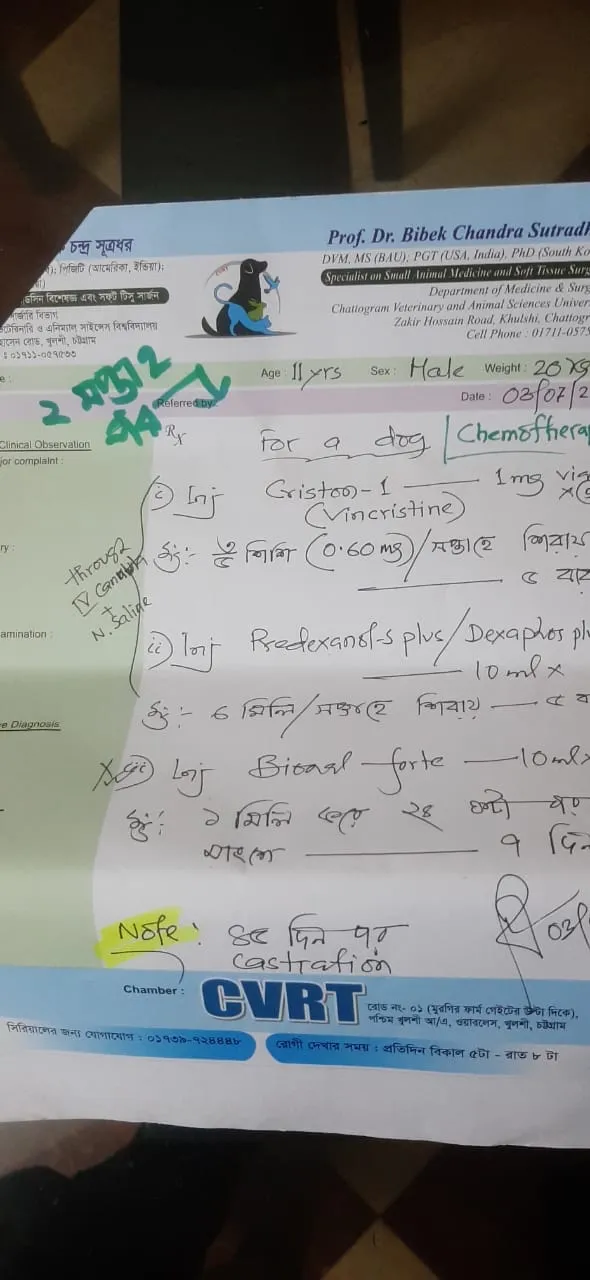 চন্দ্র সূত্রধর
পিজিটি (আমেরিকা, ইন্ডিয়া);
মেডিসিন বিশেষজ্ঞ এবং সফ্ট টিস্যু সার্জন
সার্জারি বিভাগ
ভেটেরিনারি ও এনিম্যাল সাইন্সেস বিশ্ববিদ্যালয়
হোসেন রোড, খুলশী, চট্টগ্রাম
Prof. Dr. Bibek Chandra Sutradh
DVM, MS (BAU); PGT (USA, India), PhD (South Ko
Specialist on Small Animal Medicine and Soft Tissue Surg
Department of Medicine & Surg
Chattogram Veterinary and Animal Sciences Univer
Zakir Hossain Road, Khulshi, Chattogr
Cell Phone : 01711-0575
Age : 11 yrs Sex : Male Weight : 20 kg
Date : 03/07/2
2 সপ্তাহ
Referred by:
Clinical Observation
jor complaint :
Rx
For a dog | Chemotherap
i) Inj Criston-1 — 1mg
(Vincristine)
শিশি (0.60 mg)/সপ্তাহে শিরায়
৫ বার
through
IV Cannula
+
N. Saline
ry :
amination :
ii) Inj Predexanol-S plus/Dexaphos pl
10 ml x
৬ মিলি/সপ্তাহে শিরায় — ৫ ব
e Diagnosis
iii) Inj forte — 10ml x
১ মিলি করে ২৪ ঘন্টা পর
মাংসে — ৭ দিন
Note: ৪৫ দিন পর
castration
03/
Chamber : CVRT
রোড নং- ০১ (মুরগির ফার্ম গেইটের উল্টা দিকে),
পশ্চিম খুলশী আ/এ, ওয়ারলেস, খুলশী, চট্টগ্রাম
সিরিয়ালের জন্য যোগাযোগ : ০১৭৩৯-৭২৪৪৪৮
রোগী দেখার সময় : প্রতিদিন বিকাল ৫টা - রাত ৮ টা